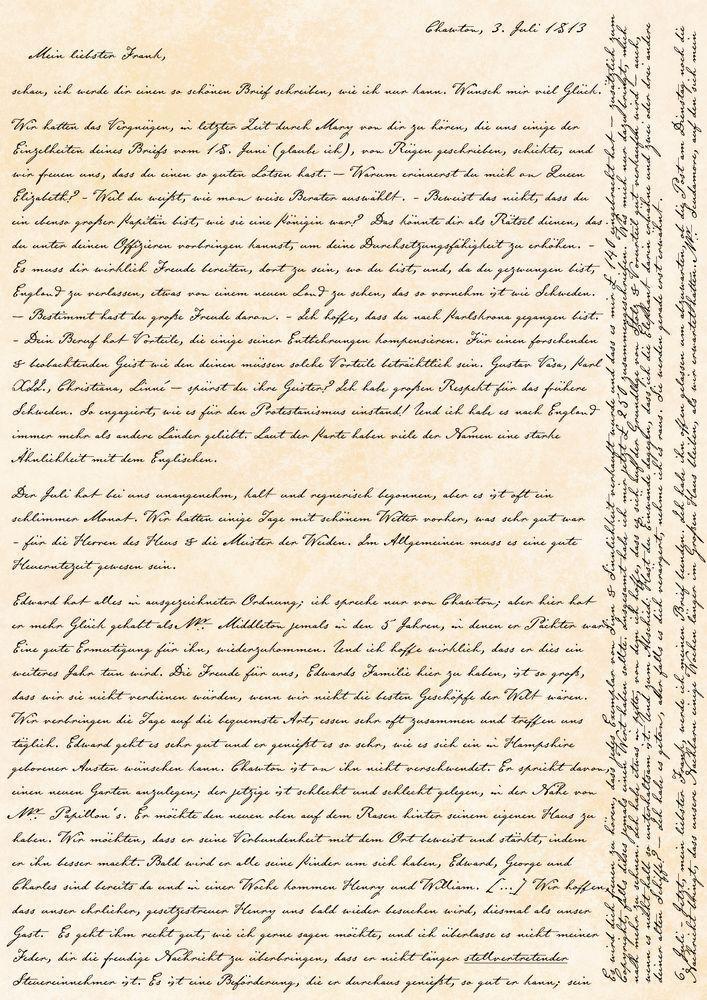 Chawton, 3. Juli 1813
Mein liebster Frank,
schau, ich werde dir einen so schönen Brief schreiben, wie ich nur kann. Wünsch mir viel Glück.
Wir hatten das Vergnügen, in letzter Zeit durch Mary von dir zu hören, die uns einige der
Einzelheiten deines Briefs vom 18. Juni (glaube ich), von Rügen geschrieben, schickte, und
wir freuen uns, dass du einen so guten Lotsen hast. — Warum erinnerst du mich an Queen
Elizabeth? - Weil du weißt, wie man weise Berater auswählt. - Beweist das nicht, dass du
ein ebenso großer Kapitän bist, wie sie eine Königin war? Das könnte dir als Rätsel dienen, das
du unter deinen Offizieren vorbringen kannst, um deine Durchsetzungsfähigkeit zu erhöhen. -
Es muss dir wirklich Freude bereiten, dort zu sein, wo du bist, und, da du gezwungen bist,
England zu verlassen, etwas von einem neuen Land zu sehen, das so vornehm ist wie Schweden.
— Bestimmt hast du große Freude daran. - Ich hoffe, dass du nach Karlskrona gegangen bist.
- Dein Beruf hat Vorteile, die einige seiner Entbehrungen kompensieren. Für einen forschenden
& beobachtenden Geist wie den deinen müssen solche Vorteile beträchtlich sein. Gustav Vasa, Karl
XII., Christiana, Linné — spürst du ihre Geister? Ich habe großen Respekt für das frühere
Schweden. So engagiert, wie es für den Protestanismus einstand! Und ich habe es nach England
immer mehr als andere Länder geliebt. Laut der Karte haben viele der Namen eine starke
Ähnlichkeit mit dem Englischen.
Der Juli hat bei uns unangenehm, kalt und regnerisch begonnen, aber es ist oft ein
schlimmer Monat. Wir hatten einige Tage mit schönem Wetter vorher, was sehr gut war
- für die Herren des Heus & die Meister der Weiden. Im Allgemeinen muss es eine gute
Heuerntezeit gewesen sein.
Edward hat alles in ausgezeichneter Ordnung; ich spreche nur von Chawton; aber hier hat
er mehr Glück gehabt als Mr. Middleton jemals in den 5 Jahren, in denen er Pächter war.
Eine gute Ermutigung für ihn, wiederzukommen. Und ich hoffe wirklich, dass er dies ein
weiteres Jahr tun wird. Die Freude für uns, Edwards Familie hier zu haben, ist so groß,
dass wir sie nicht verdienen würden, wenn wir nicht die besten Geschöpfe der Welt wären.
Wir verbringen die Tage auf die bequemste Art, essen sehr oft zusammen und treffen uns
täglich. Edward geht es sehr gut und er genießt es so sehr, wie es sich ein in Hampshire
geborener Austen wünschen kann. Chawton ist an ihn nicht verschwendet. Er spricht davon,
einen neuen Garten anzulegen; der jetzige ist schlecht und schlecht gelegen, in der Nähe von
Mr. Papillon's. Er möchte den neuen oben auf dem Rasen hinter seinem eigenen Haus zu
haben. Wir möchten, dass er seine Verbundenheit mit dem Ort beweist und stärkt, indem
er ihn besser macht. Bald wird er alle seine Kinder um sich haben, Edward, George und
Charles sind bereits da und in einer Woche kommen Henry und William. [...] Wir hoffen,
dass unser ehrlicher, gesetzestreuer Henry uns bald wieder besuchen wird, diesmal als unser
Gast. Es geht ihm recht gut, wie ich gerne sagen möchte, und ich überlasse es nicht meiner
Feder, dir die freudige Nachricht zu überbringen, dass er nicht länger stellvertretender
Steuereinnehmer ist. Es ist eine Beförderung, die er durchaus genießt, so gut er kann; sein
Es wird dich freuen zu hören, dass jedes Exemplar von Sinn & Sinnlichkeit verkauft wurde und dass es mir £ 140 eingebracht hat — zusätzlich zum
Copyright, falls dieses jemals einen Wert haben sollte. Insgesamt habe ich mir jetzt £ 250 zusammengeschrieben. Was mich nur dazu bringt, mich
nach mehr zu sehnen. Ich habe etwas in petto, von dem ich hoffe, dass es sich auf der Grundlage von Stolz & Vorurteil gut verkaufen wird — auch,
wenn es nicht halb so unterhaltsam ist. Und zum Abschied: Hast du Einwände dagegen, dass ich die Elephant darin erwähne und zwei oder drei andere
deiner alten Schiffe? — Ich habe es getan, aber falls es dich verärgert, nehme ich es raus. Sie werden gerade erst erwähnt.
6. Juli - Jetzt, mein liebster Frank, werde ich meinen Brief beenden. Ich habe ihn offen gelassen um abzuwarten, ob die Post am Dienstag noch die
Nachricht bringt, dass unsere Nachbarn einige Wochen länger im Großen Haus bleiben, als wir erwartet hatten. Mr. Scudamore, auf den sich mein